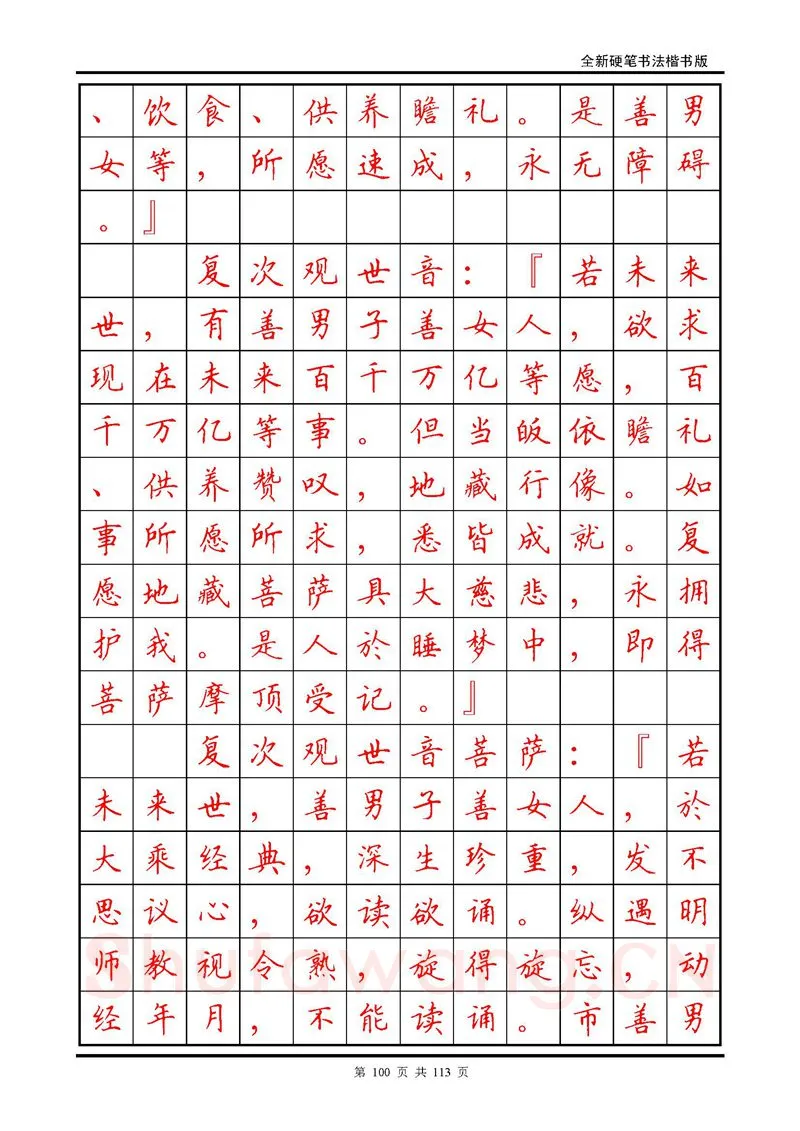 全新硬笔书法楷书版
、饮食、供养瞻礼。是善男
女等，所愿速成，永无障碍
。』
复次观世音：『若未来
世，有善男子善女人，欲求
现在未来百千万亿等愿，百
千万亿等事。但当皈依瞻礼
、供养赞叹，地藏行像。如
事所愿所求，悉皆成就。复
愿地藏菩萨具大慈悲，永拥
护我。是人於睡梦中，即得
菩萨摩顶受记。』
复次观世音菩萨：『若
未来世，善男子善女人，於
大乘经典，深生珍重，发不
思议心，欲读欲诵。纵遇明
师教视令熟，旋得旋忘，动
经年月，不能读诵。市善男
Shufawang.CN
第 100 页 共 113 页